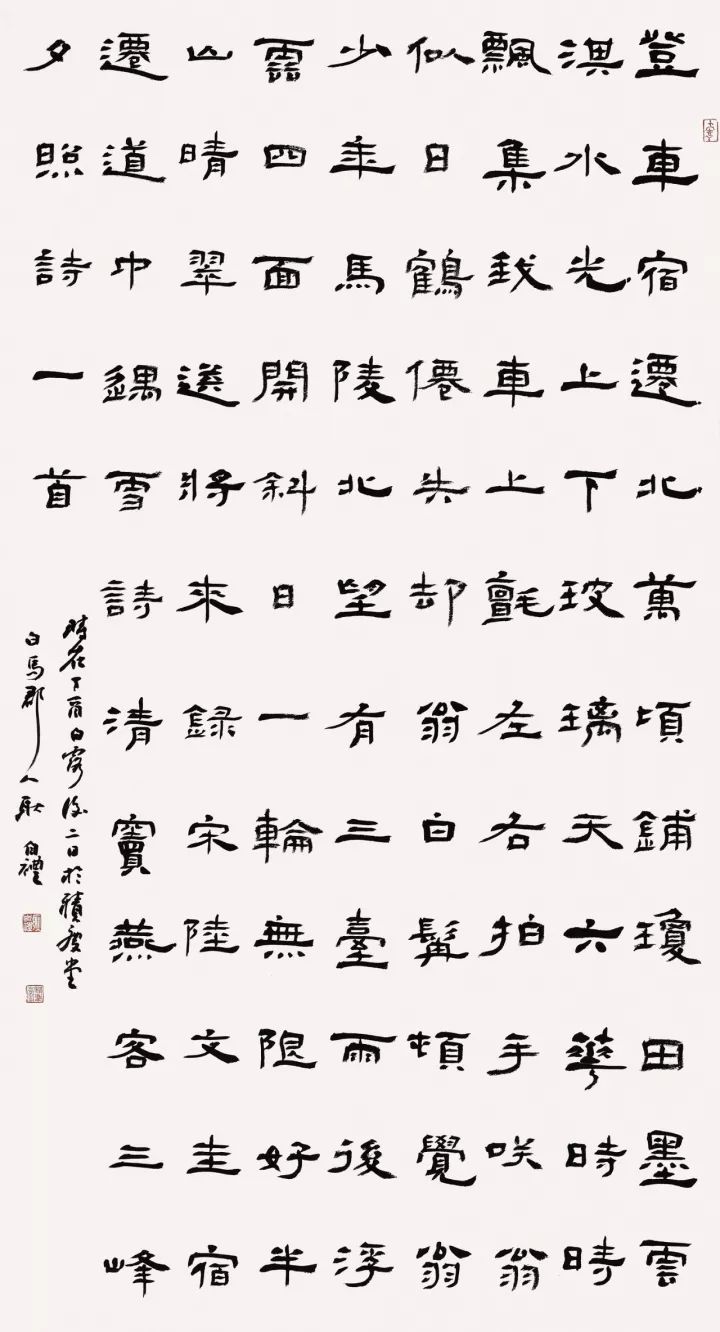 登車宿遷北萬頃鋪瓊田墨雲
淇水光上下玻璃天六華時時
飄集我車上氈左右拍手咲翁
似日鶴僊失却翁白髯頓覺翁
少年馬陵北望有三臺雨後浮
雲四面開斜日一輪無限好半
山晴翠送將來録宋陸文圭宿
遷道中遇雪詩清竇燕客三峰
夕照詩一首
時在丁酉白露後二日於積慶堂
白馬郡人耿自禮